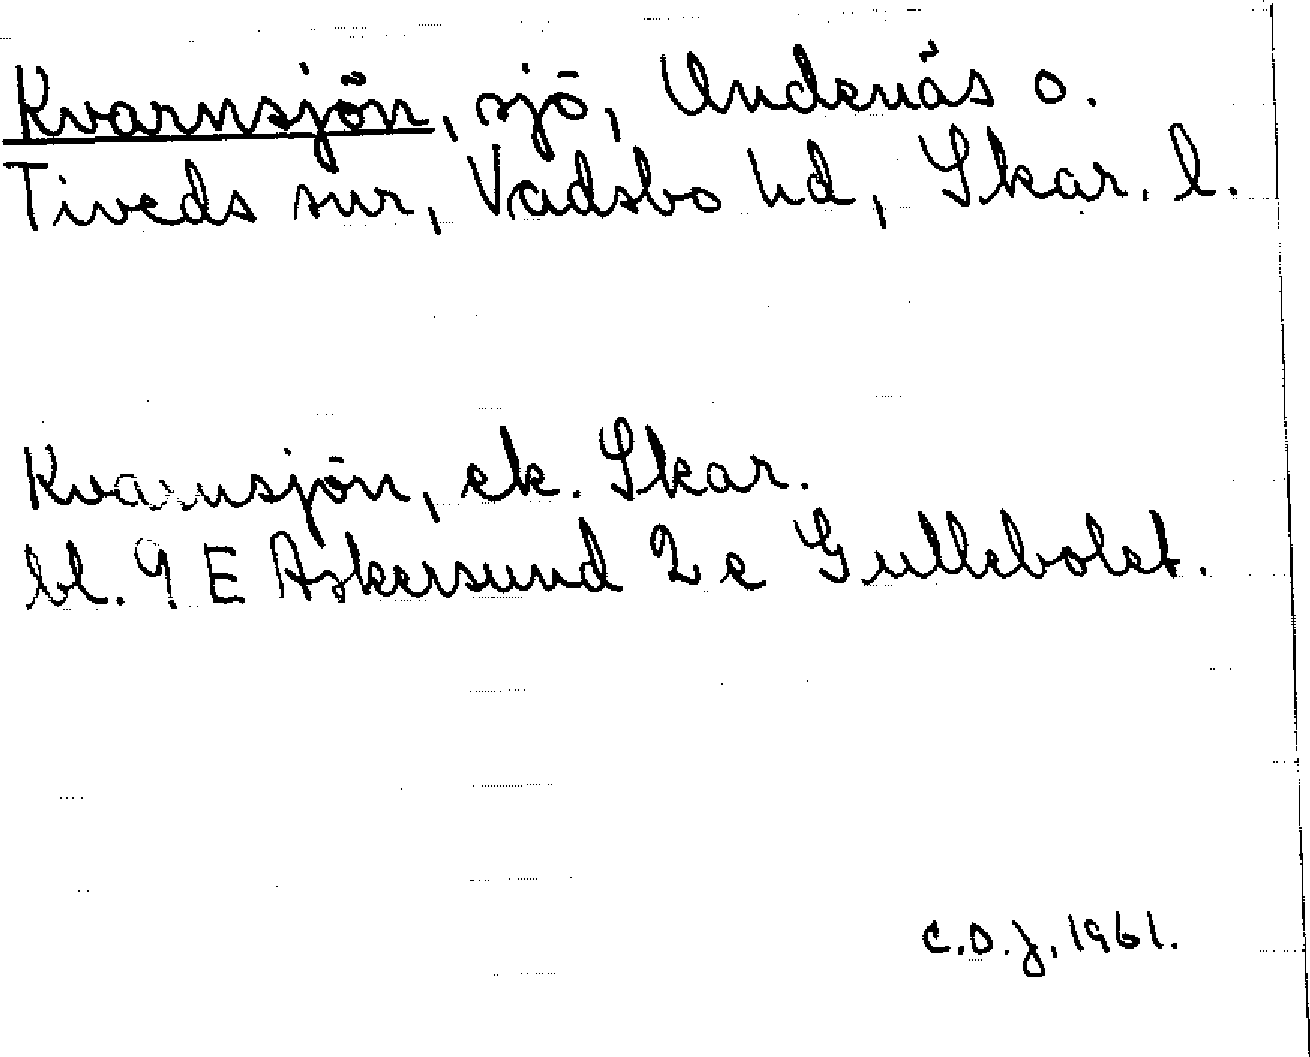 Kvarnsjön, sjö, Undenäs o.
Tiveds snr, Vadsbo hd, Skar. l.
Kvarnsjön, ek. Skar.
bl. 9 E Askersund 2 c Gullebolet.
C.O.J. 1961.